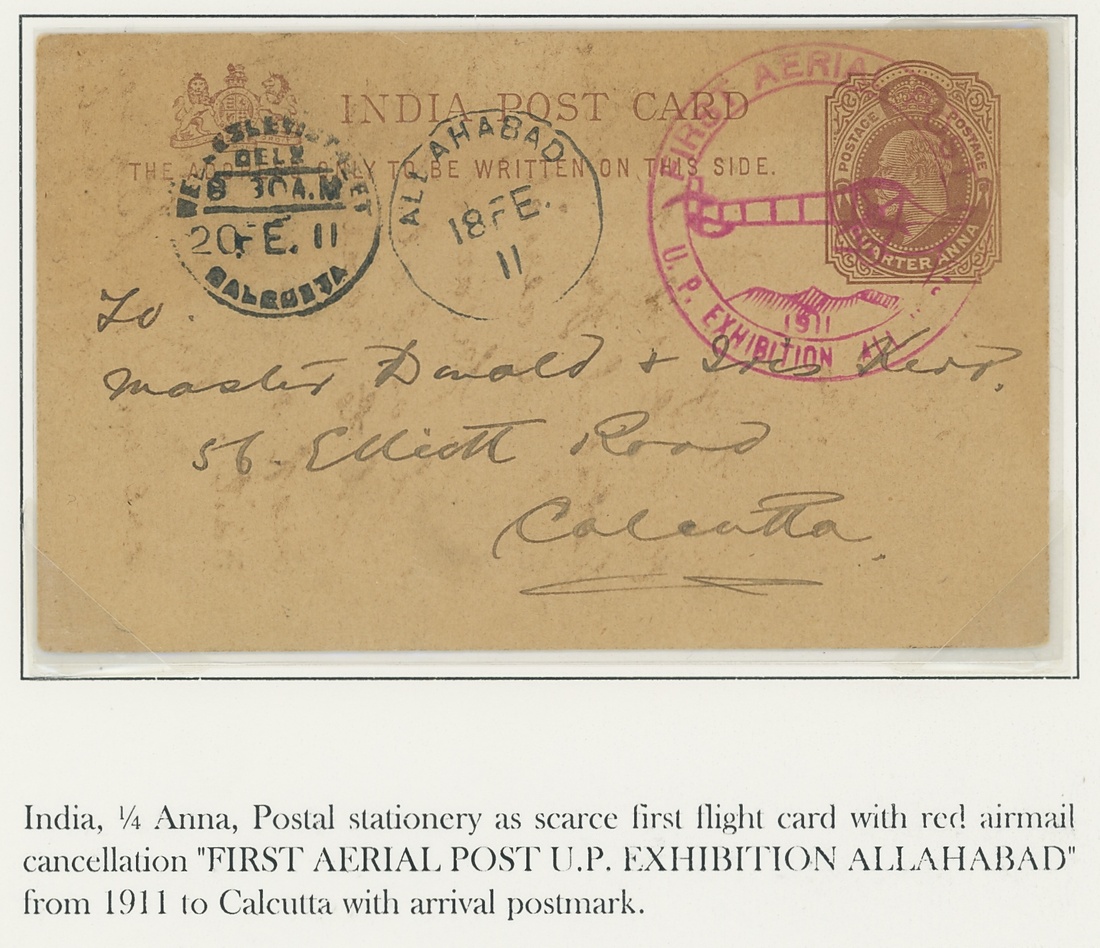 INDIA POST CARD
THE ADDRESS ONLY TO BE WRITTEN ON THIS SIDE.
FIRST AERIAL POST
1911
U.P. EXHIBITION ALL
POSTAGE POSTAGE
QUARTER ANNA
DELY
8 30 A.M
20 FE. 11
CALCUTTA
ALLAHABAD
18 FE.
11
To.
Master Donald + Iris Kerr.
56. Elliott Road
Calcutta.
India, ¼ Anna, Postal stationery as scarce first flight card with red airmail
cancellation "FIRST AERIAL POST U.P. EXHIBITION ALLAHABAD"
from 1911 to Calcutta with arrival postmark.